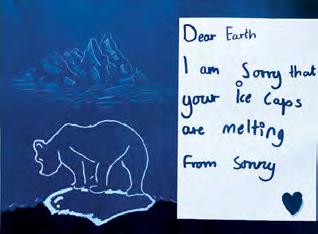 Dear Earth
I am Sorry that
your Ice Caps
are melting
From Sonny